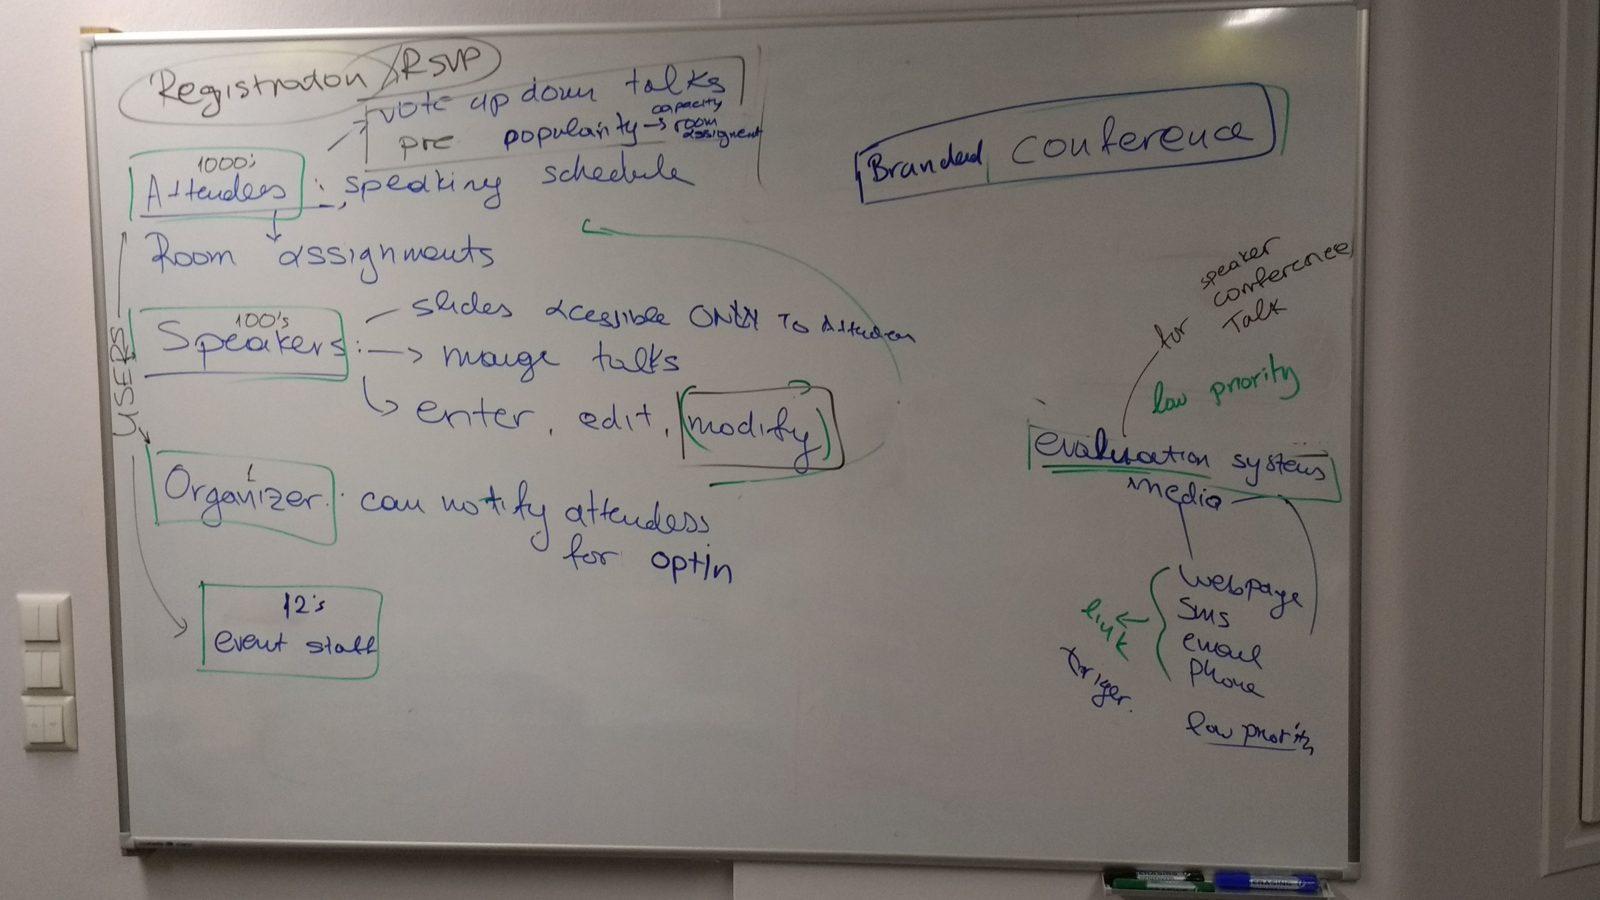 Registration / RSVP
vote up down talks
pre popularity → capacity
room
assigment
1000's
Attendees : speaking schedule
Room assignments
USERS
100's
Speakers :
slides accessible ONLY TO Attendees
→ mange talks
enter, edit, (modify)
1
Organizer : can notify attendess
for optin
12's
event staff
Branded conference
for speaker
conference
Talk
low priority
evaluation systems
media
webpage
SMS
email
phone
link
triger.
low priority